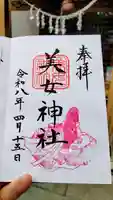 奉拝
美女神社
令和八年四月十五日